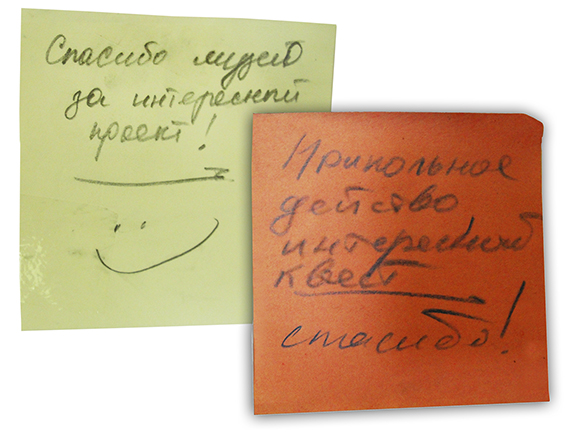 Спасибо музею
за интересный
проект!
Прикольное
действо
интересный
квест
спасибо!